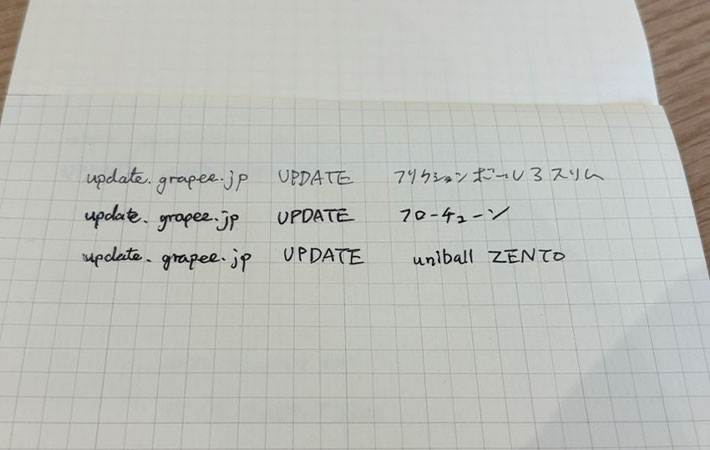 update.grapee.jp UPDATE フリクションボール3スリム
update.grapee.jp UPDATE フローチューン
update.grapee.jp UPDATE uniball ZENTO